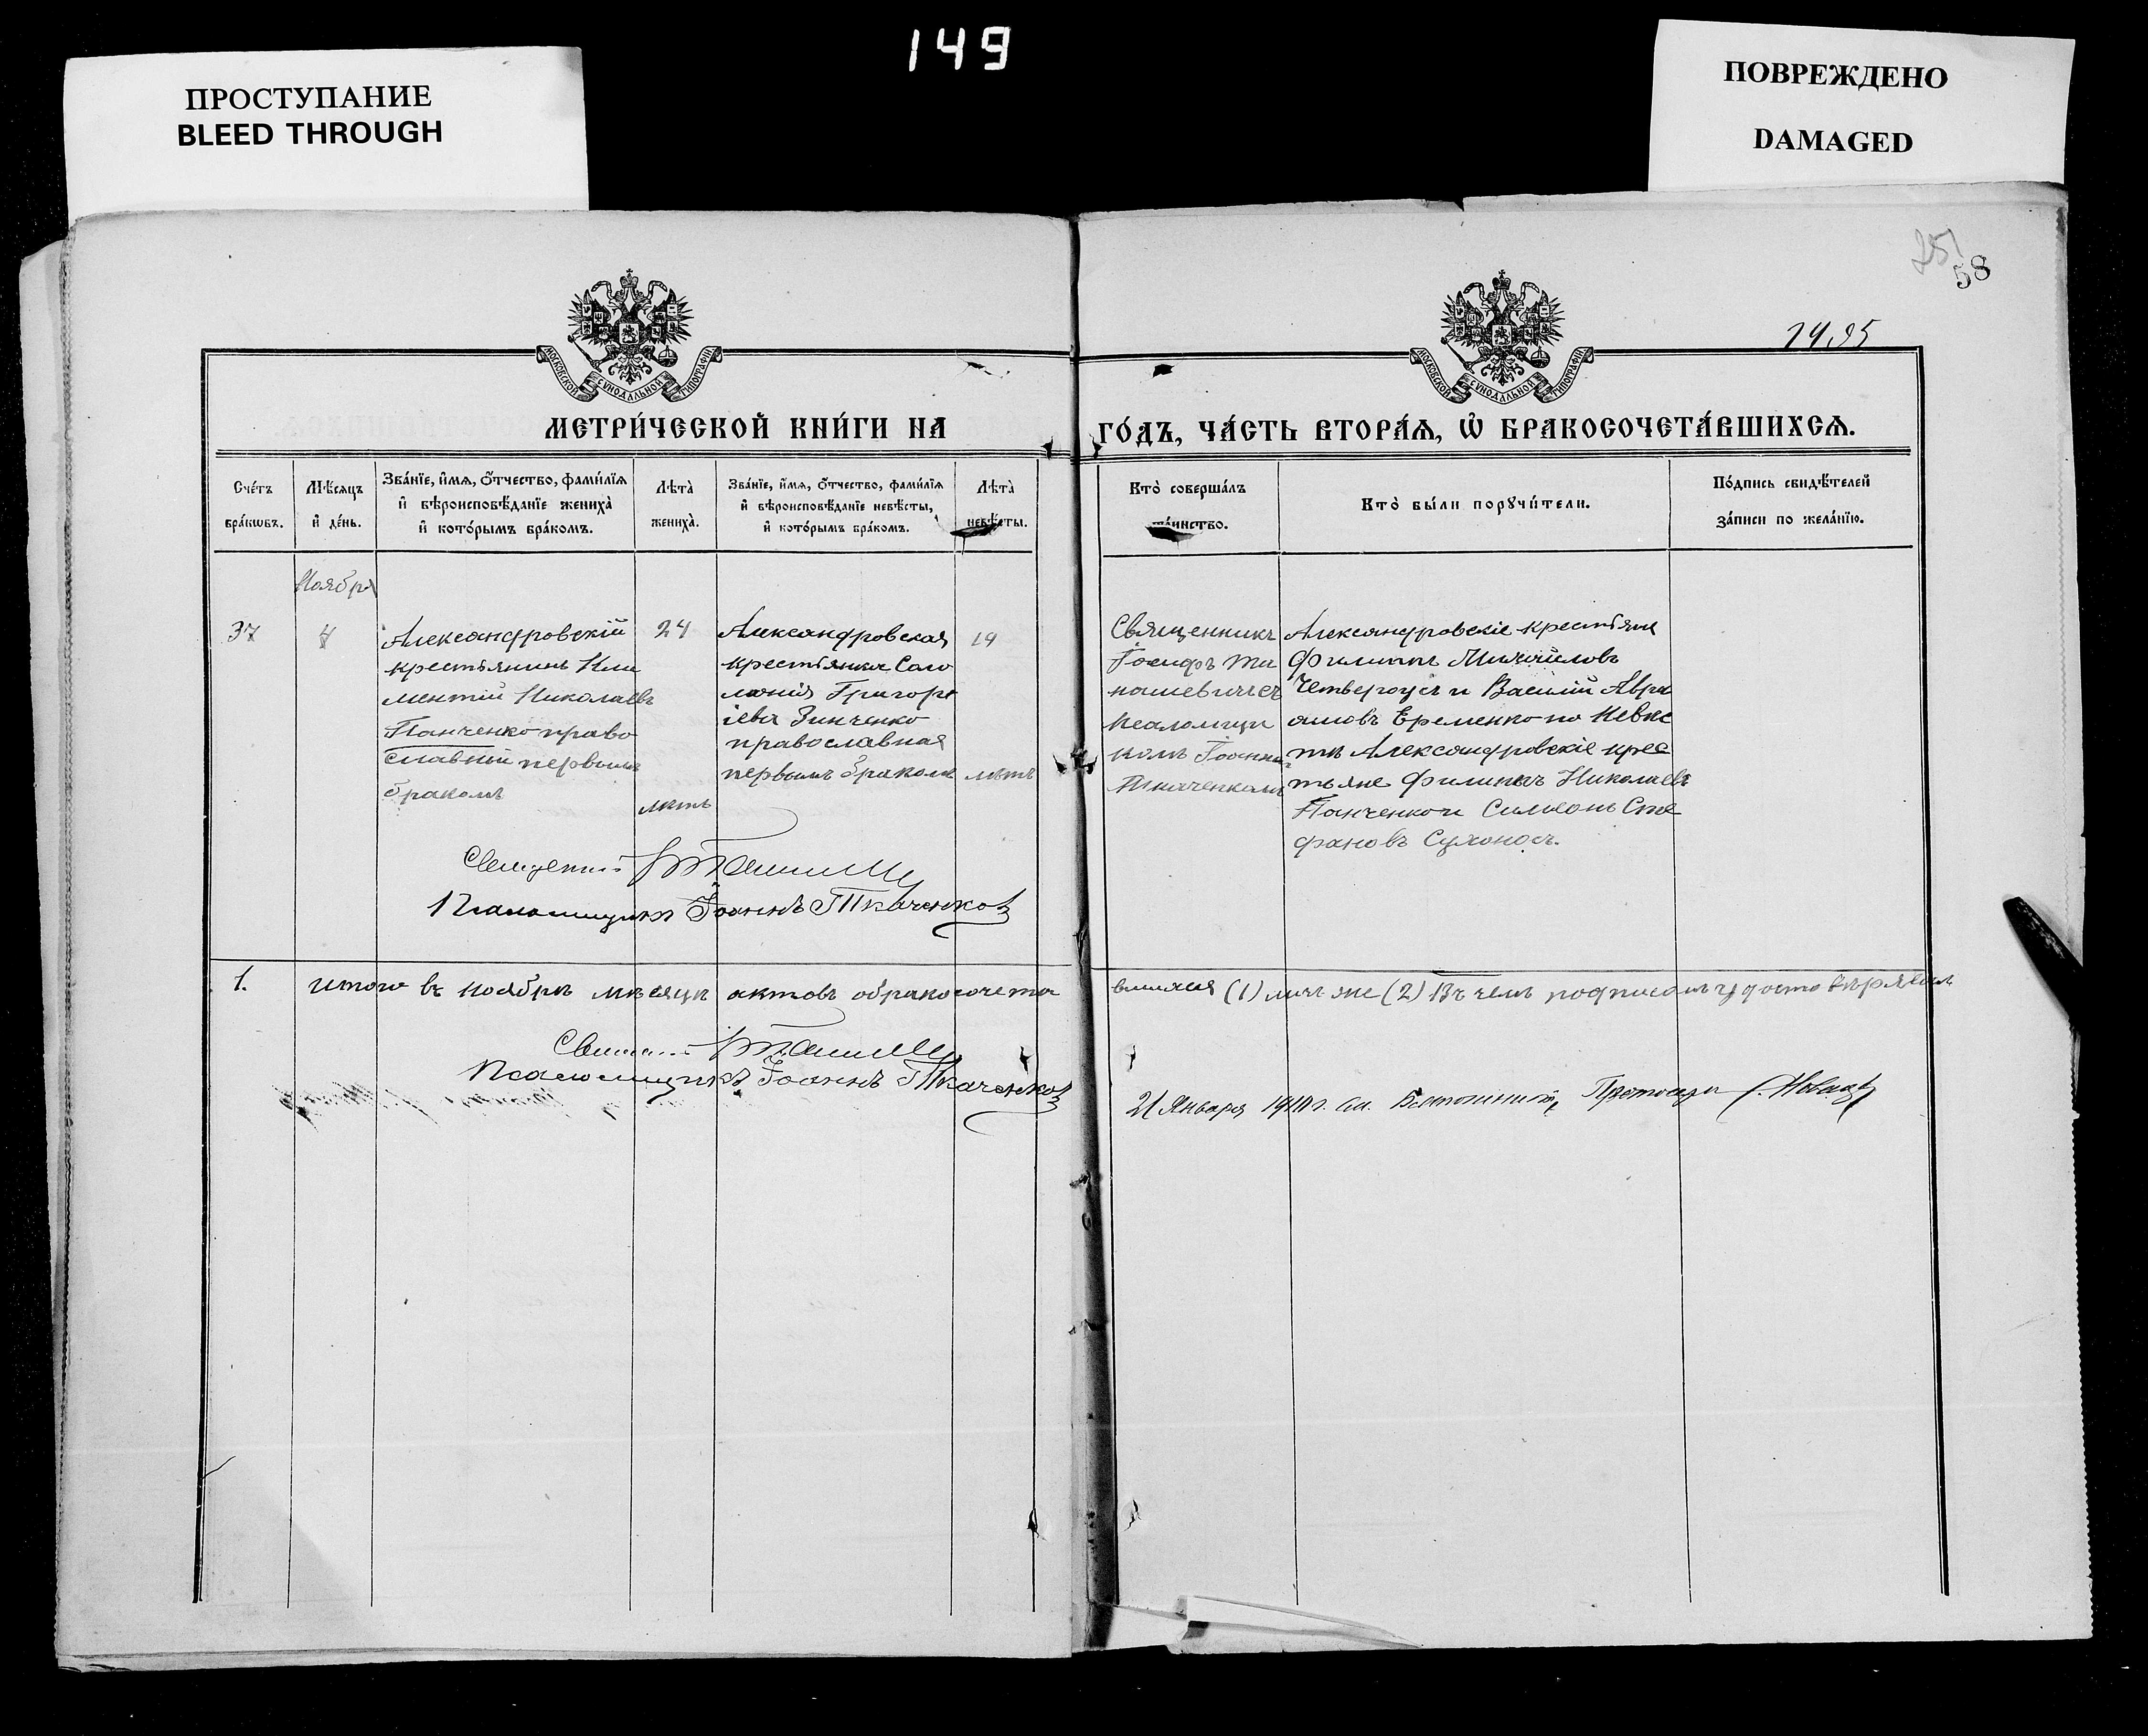 149
ПРОСТУПАНИЕ
BLEED THROUGH
ПОВРЕЖДЕНО
DAMAGED
251
58
МОСКОВСКОЙ СѴНОДАЛЬНОЙ ТИПОГРАФІИ
МОСКОВСКОЙ СѴНОДАЛЬНОЙ ТИПОГРАФІИ
МЕТРИ́ЧЕСКОЙ КНИ́ГИ НА
ГО́ДЪ, ЧА́СТЬ ВТОРА́Я, Ѡ БРАКОСОЧЕТА́ВШИХСѦ.
Сче́тъ
бра́кѡвъ.
Мѣ́сяцъ
и҆ де́нь.
Зва́нїе, и҆́мѧ, ѻ҆́тчество, фами́лїѧ
и҆ вѣроисповѣ́данїе жениха̀
и҆ кото́рымъ бра́комъ.
Лѣта̀
жениха̀.
Зва́нїе, и҆́мѧ, ѻ҆́тчество, фами́лїѧ
и҆ вѣроисповѣ́данїе невѣ́сты,
и҆ кото́рымъ бра́комъ.
Лѣта̀
невѣ́сты.
Кто̀ соверша́лъ
та́инство.
Кто̀ бы́ли порꙋчи́тели.
По́дпись свидѣ́телей
за́писи по жела́нїю.
Ноября
37
4
Александровскій
крестьянинъ Кли
ментій Николаевъ
Панченко право
славный первымъ
бракомъ
24
лѣтъ
Александровская
крестьянка Соло
монія Григорь
іева Зинченко
православная
первымъ бракомъ
19
лѣтъ
Священникъ
Іосифъ Та
нашевичъ съ
псаломщи
комъ Іоанно
Ткаченкомъ
Александровскіе крестьяне
Филиппъ Михайловъ
Четвероусъ и Василій Авра
амовъ Еременко по невѣс
тѣ Александровскіе крес
тьяне Филиппъ Николаевъ
Панченко и Симеонъ Сте
фановъ Сухоносъ.
Псаломщикъ Іоаннъ Ткаченковъ
1. Итого въ ноябрѣ мѣсяцѣ актовъ о бракосочета
вшихся (1) лицъ же (2) Въ чемъ подписомъ удостовѣряемъ
Псаломщикъ Іоаннъ Ткаченковъ
21 Января